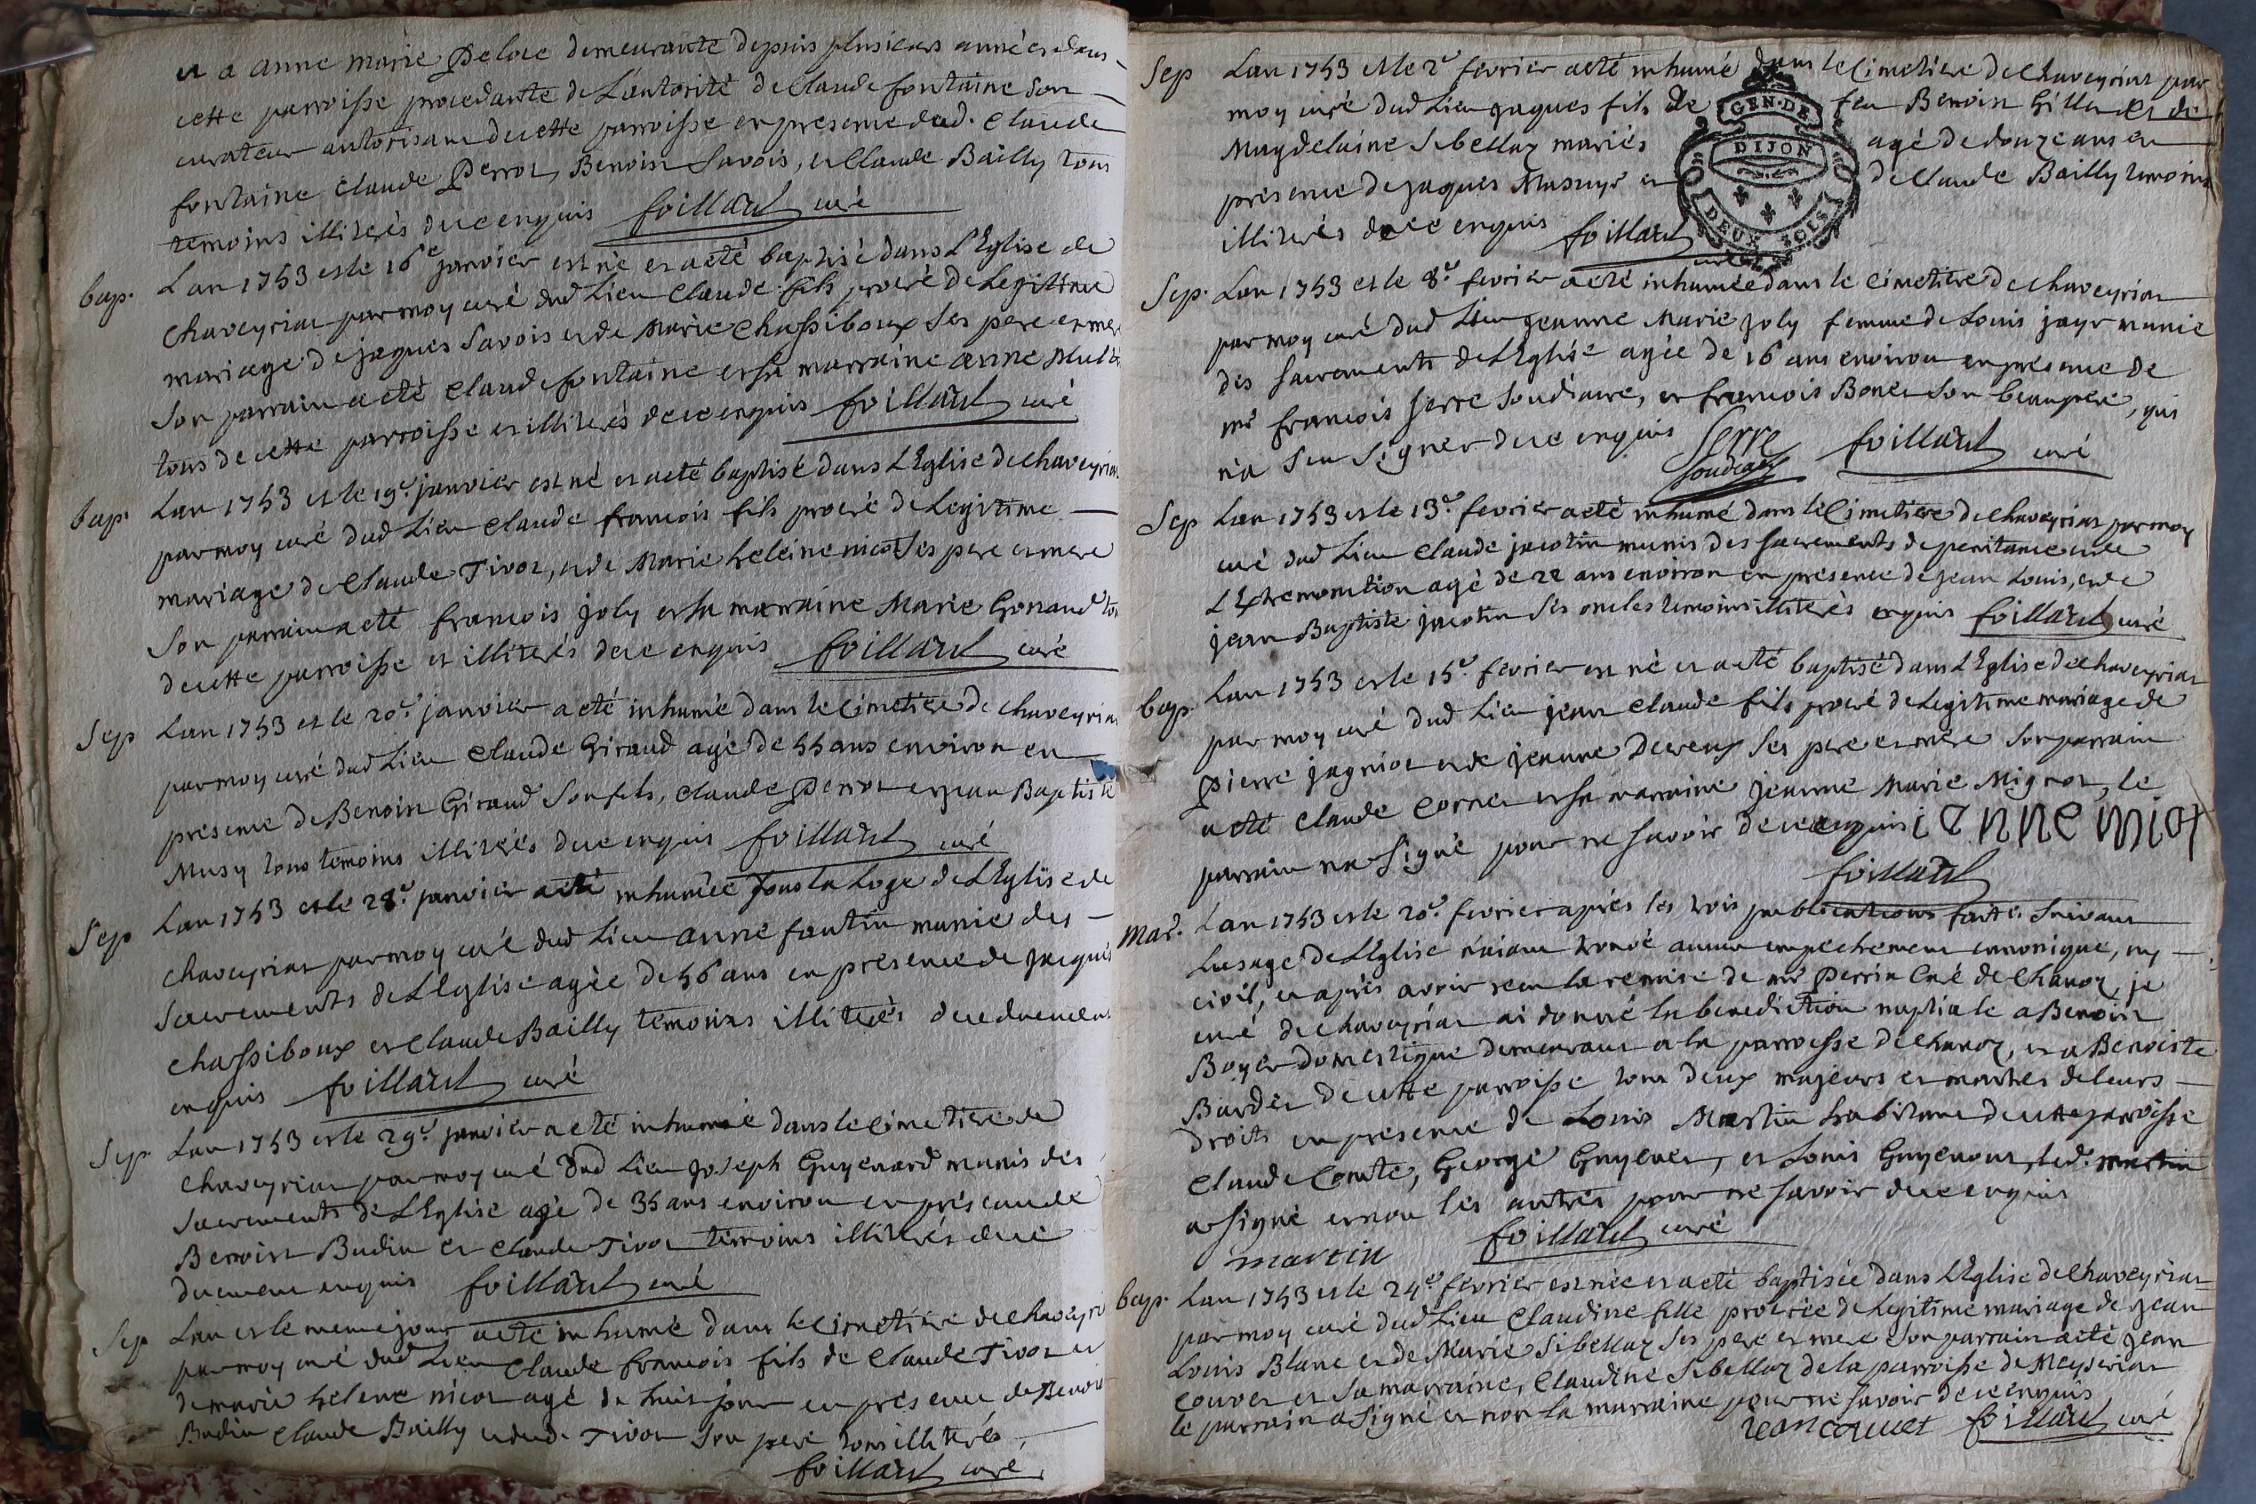 et a anne marie Deloie demeurante depuis plusieurs années dans
cette parroisse procedante de L'autorité de Claude fontaine son
curateur autorisant de cette parroisse en presence dud. Claude
fontaine Claude Perrot, Benoist Savois, et Claude Bailly tous
temoins illiterés de ce enquis foillard curé
bap. Lan 1753 et le 16e janvier est né et a eté baptisé dans L'Eglise de
Chaveyriat par moy curé dud Lieu Claude fils procrée de Legittime
mariage de jaques Savois et de Marie Chassiboux ses pere et mere
son parrain a eté Claude fontaine et sa marraine anne
tous de cette parroisse et illiterés de ce enquis foillard curé
bap. Lan 1753 et le 19e janvier est né et a eté baptisé dans L'Eglise de Chaveyriat
par moy curé dud Lieu Claude francois fils procré de Legitime
mariage de Claude Tivot, et de Marie heleine nicot ses pere et mere
Son parrain a eté francois joly et sa marraine Marie Gonand
de cette parroisse et illiterés de ce enquis foillard curé
Sep Lan 1753 et le 20e janvier a eté inhumé dans le Cimetiere de Chaveyriat
par moy curé dud Lieu Claude Giraud agé de 55 ans environ en
presence de Benoist Giraud Son fils, Claude Perrot et jean Baptiste
Musy tous temoins illiterés de ce enquis foillard curé
Sep Lan 1753 et le 28e janvier a eté inhumée sous la Loge de L'Eglise de
Chaveyriat par moy curé dud Lieu anne fontin munie des
Sacrements de L'Eglise agée de 56 ans en presence de jacques
Chassiboux et Claude Bailly temoins illiterés de ce duement
enquis foillard curé
Sep Lan 1753 et le 29e janvier a eté inhumé dans le Cimetiere de
Chaveyriat par moy curé dud Lieu joseph Guyenard munis des
Sacrements de L'Eglise agé de 35 ans environ en presence de
Benoist Budin et Claude Tivot temoins illiterés de ce
duement enquis foillard curé
Sep Lan et le meme jour a eté inhumé dans le Cimetiere de Chaveyri
par moy curé dud Lieu Claude francois fils de Claude Tivot et
de marie helene nicot agé de huit jour en presence de Benoi
Budin Claude Bailly et dud. Tivot son pere tous illiterés,
foillard curé,
Sep Lan 1753 et le 2e fevrier a eté inhumé dans le Cimetiere de Chaveyriat par
GEN. DE
DIJON
DEUX SOLS
moy curé dud Lieu jaques fils de feu Benoist Gillet et de
Magdelaine Sibellaz mariés agé de douze ans en
presence de jaques Musuyr et de Claude Bailly temoins
illiterés de ce enquis foillard curé
Sep. Lan 1753 et le 8e fevrier a eté inhumée dans le Cimetiere de Chaveyriat
par moy curé dud Lieu jeanne Marie joly femme de Louis jayr munie
des Sacrements de L'Eglise agée de 16 ans environ en presence de
mr francois Serre Soudiacre, et francois Bonet Son beaupere, qui
n'a Seu Signer de ce enquis Serre Soudiacre foillard curé
Sep Lan 1753 et le 13e fevrier a eté inhumé dans le Cimetiere de Chaveyriat par moy
curé dud Lieu Claude jacotin munis des Sacrements de penitance et de
L'Extremonction agé de 22 ans environ en presence de jean Louis, et de
jean Baptiste jacotin Ses oncles temoins illiterés enquis foillard curé
bap. Lan 1753 et le 15e fevrier est né et a eté baptisé dans L'Eglise de Chaveyriat
par moy curé dud Lieu jean Claude fils procré de Legitime mariage de
Pierre jagniot et de jeanne Deveux Ses pere et mere Son parrain
a eté Claude Cornet et sa marraine jeanne Marie Mignot, le
parrain n'a Signé pour ne Savoir de ce enquis ieanne miot
foillard
Mar. Lan 1753 et le 20e fevrier aprés les trois publications faites Suivant
Lusage de L'Eglise n'aiant trouvé aucun empechement cannonique, ny
civil, et aprés avoir receu la remise de mr Perrin Curé de Chanoz, je
curé de Chaveyriat ai donné la benediction nuptiale a Benoist
Boyer Domestique demeurant a la parroisse de Chanoz, et a Benoiste
Bardet de cette parroisse tous deux majeurs et maitres de leurs
Droits en presence de Louis Martin habitant de cette parroisse
Claude Comte, George Guyenet, et Louis Guyenon, led. martin
a Signé et non les autres pour ne Savoir de ce enquis
martin foillard curé
bap. Lan 1753 et le 24e fevrier est née et a eté baptisée dans L'Eglise de Chaveyriat
par moy curé dud Lieu Claudine fille procréée de Legitime mariage de jean
Louis Blanc et de Marie Sibellaz Ses pere et mere Son parrain a eté jean
Couvet et Sa marraine, Claudine Sibellaz de la parroisse de Meyseriat
le parrain a Signé et non la marraine pour ne Savoir de ce enquis
Jean couvet foillard curé